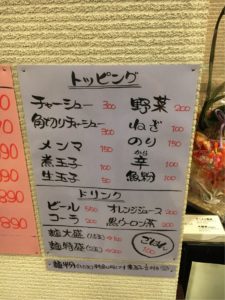 トッピング
チャーシュー 300
角切りチャーシュー 300
メンマ 150
煮玉子 100
生玉子 50
野菜 200
ねぎ 100
のり 150
辛 100
魚粉 100
ドリンク
ビール 500
コーラ 200
オレンジジュース 200
黒ウーロン茶 200
麺大盛
麺特盛
ごはん 100
麺半分
890
890
890